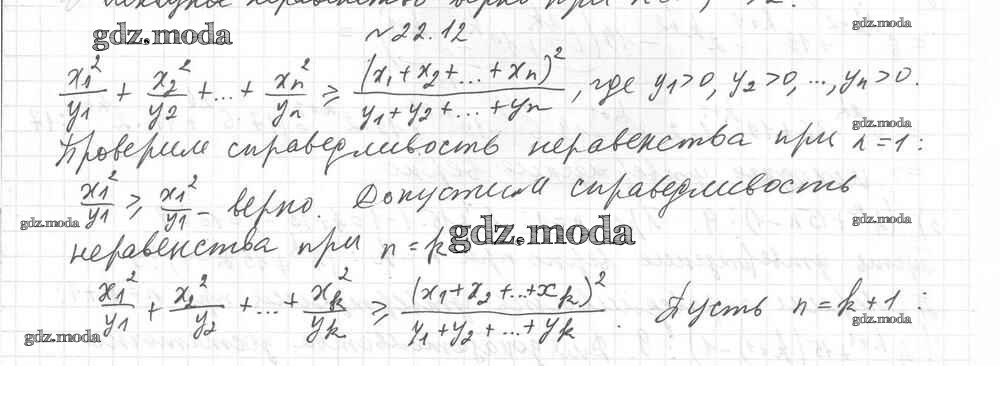 gdz.moda
№22.12
gdz.moda
x₁²/y₁ + x₂²/y₂ + ... + xₙ²/yₙ ≥ (x₁+x₂+...+xₙ)²/(y₁+y₂+...+yₙ), где y₁>0, y₂>0, ..., yₙ>0.
gdz.moda
Проверим справедливость неравенства при n=1:
x₁²/y₁ ≥ x₁²/y₁ - верно. Допустим справедливость
gdz.moda
gdz.moda
неравенства при n=k
gdz.moda
x₁²/y₁ + x₂²/y₂ + ... + x_k²/y_k ≥ (x₁+x₂+...+x_k)²/(y₁+y₂+...+y_k). Пусть n=k+1:
gdz.moda
gdz.moda